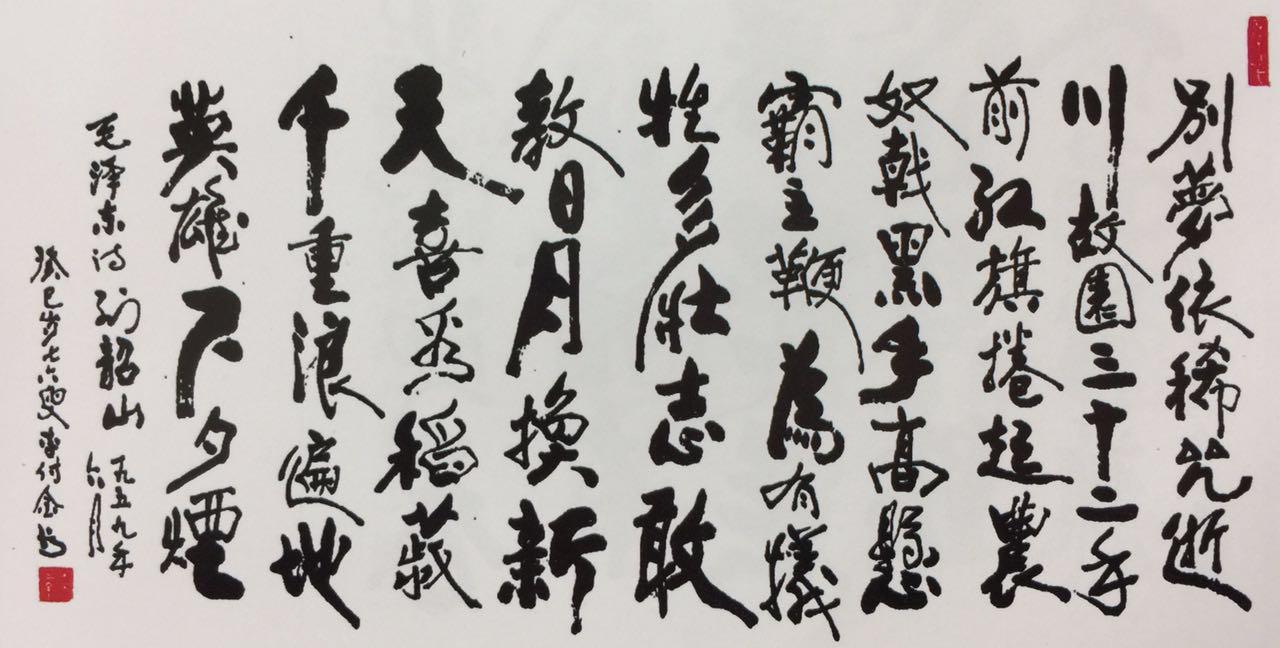 别夢依稀咒逝
川故園三十二年
前紅旗捲起農
奴戟黑手高懸
霸主鞭為有犧
牲多壯志敢
教日月換新
天喜看稻菽
千重浪遍地
英雄下夕煙
毛泽东诗到韶山 一九五九年
六月
癸巳岁七六叟李付金书